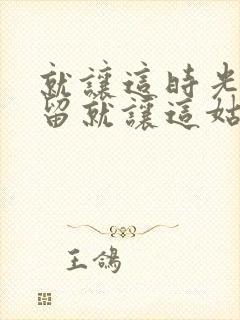 就讓這時光
留就讓這姑
王鴿